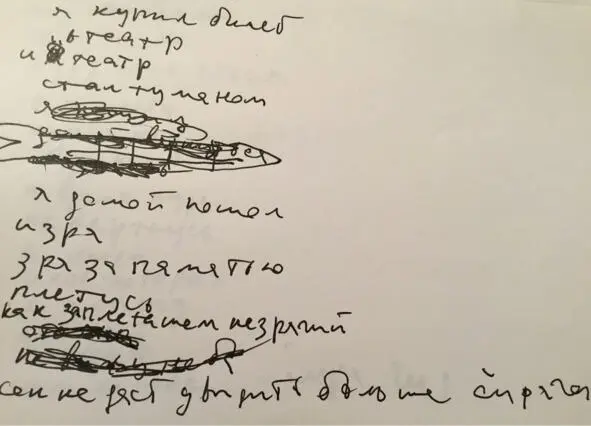 я купил билет
в театр
и театр
стал туманом
я домой пошол
и зря
зря за памятью
плетусь
как за плетнем незрячий
не даст увидить больше